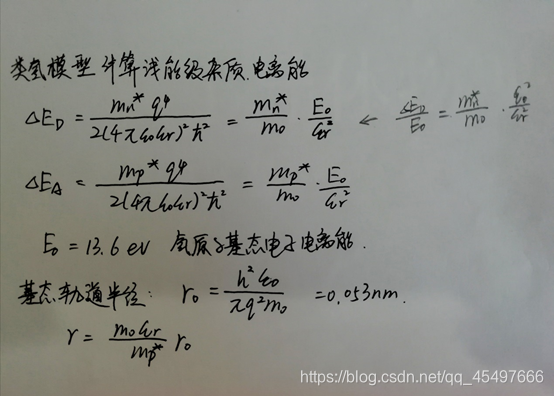 类氢模型计算浅能级杂质电离能
ΔE_D = m_n* q⁴ / 2(4πε₀εr)²ħ² = m_n*/m₀ · E₀/εr² ← ΔE_D/E₀ = m_n*/m₀ · ε₀²/εr²
ΔE_A = m_p* q⁴ / 2(4πε₀εr)²ħ² = m_p*/m₀ · E₀/εr²
E₀ = 13.6 eV 氢原子基态电子电离能.
基态轨道半径: r₀ = h²ε₀ / πq²m₀ = 0.053nm.
r = m₀εr / m_p* r₀
https://blog.csdn.net/qq_45497666